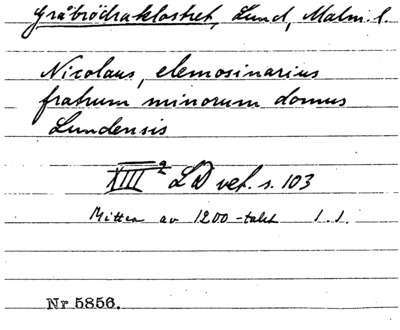 Gråbrödraklostret, Lund, Malm. l.
Nicolaus, elemosinarius
fratrum minorum domus
Lundensis
XIII 2 LD vet. s. 103
Mitten av 1200-talet 1.1.
Nr 5856.